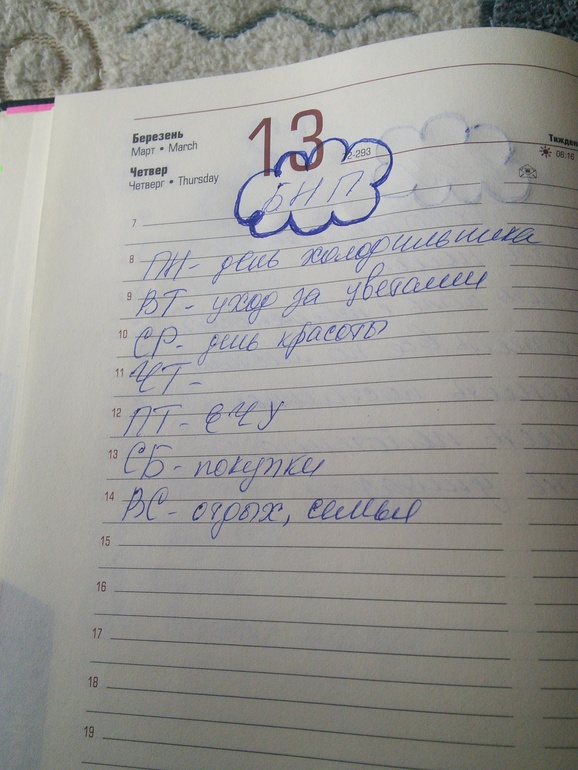 Березень
Март • March
Четвер
Четверг • Thursday
13
72-293
Тижден
06:16
БНП
7
8 ПН- день холодильника
9 ВТ- уход за цветами
10 СР- день красоты
11 ЧТ-
12 ПТ- ЕЧУ
13 СБ- покупки
14 ВС- отдых, семья
15
16
17
18
19